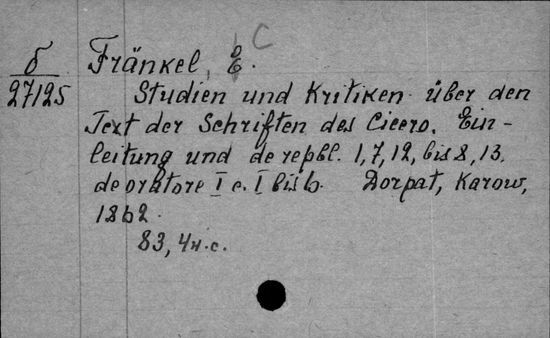 C
б
27125
Fränkel, E.
Studien und Kritiken über den
Text der Schriften des Cicero. Ein-
leitung und de repbl. 1,7,12, bis 8,13.
de oratore I c. I bis 6. Dorpat, Karow,
1862.
83, 4н.с.